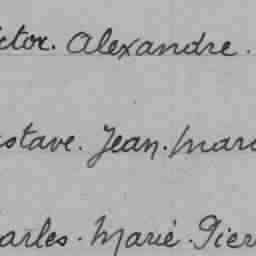 ctor. Alexandre.
ustave. Jean. Marc
harles. Marie. Pier